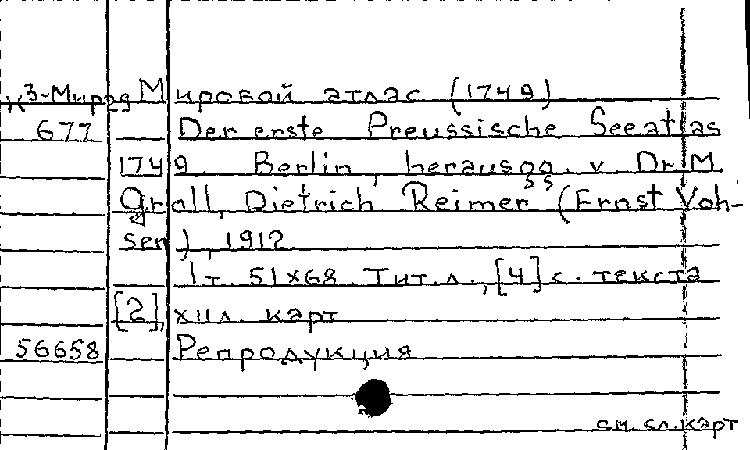 К3-Миров Мировой атлас (1749)
677 Der erste Preussische Seeatlas
1749. Berlin, herausgg. v. Dr M.
Groll, Dietrich Reimer (Ernst Voh-
sen), 1912
1 т. 51×68. Тит. л., [4] с. текста
[2], XII л. карт
56658 Репродукция
см. сл. карт